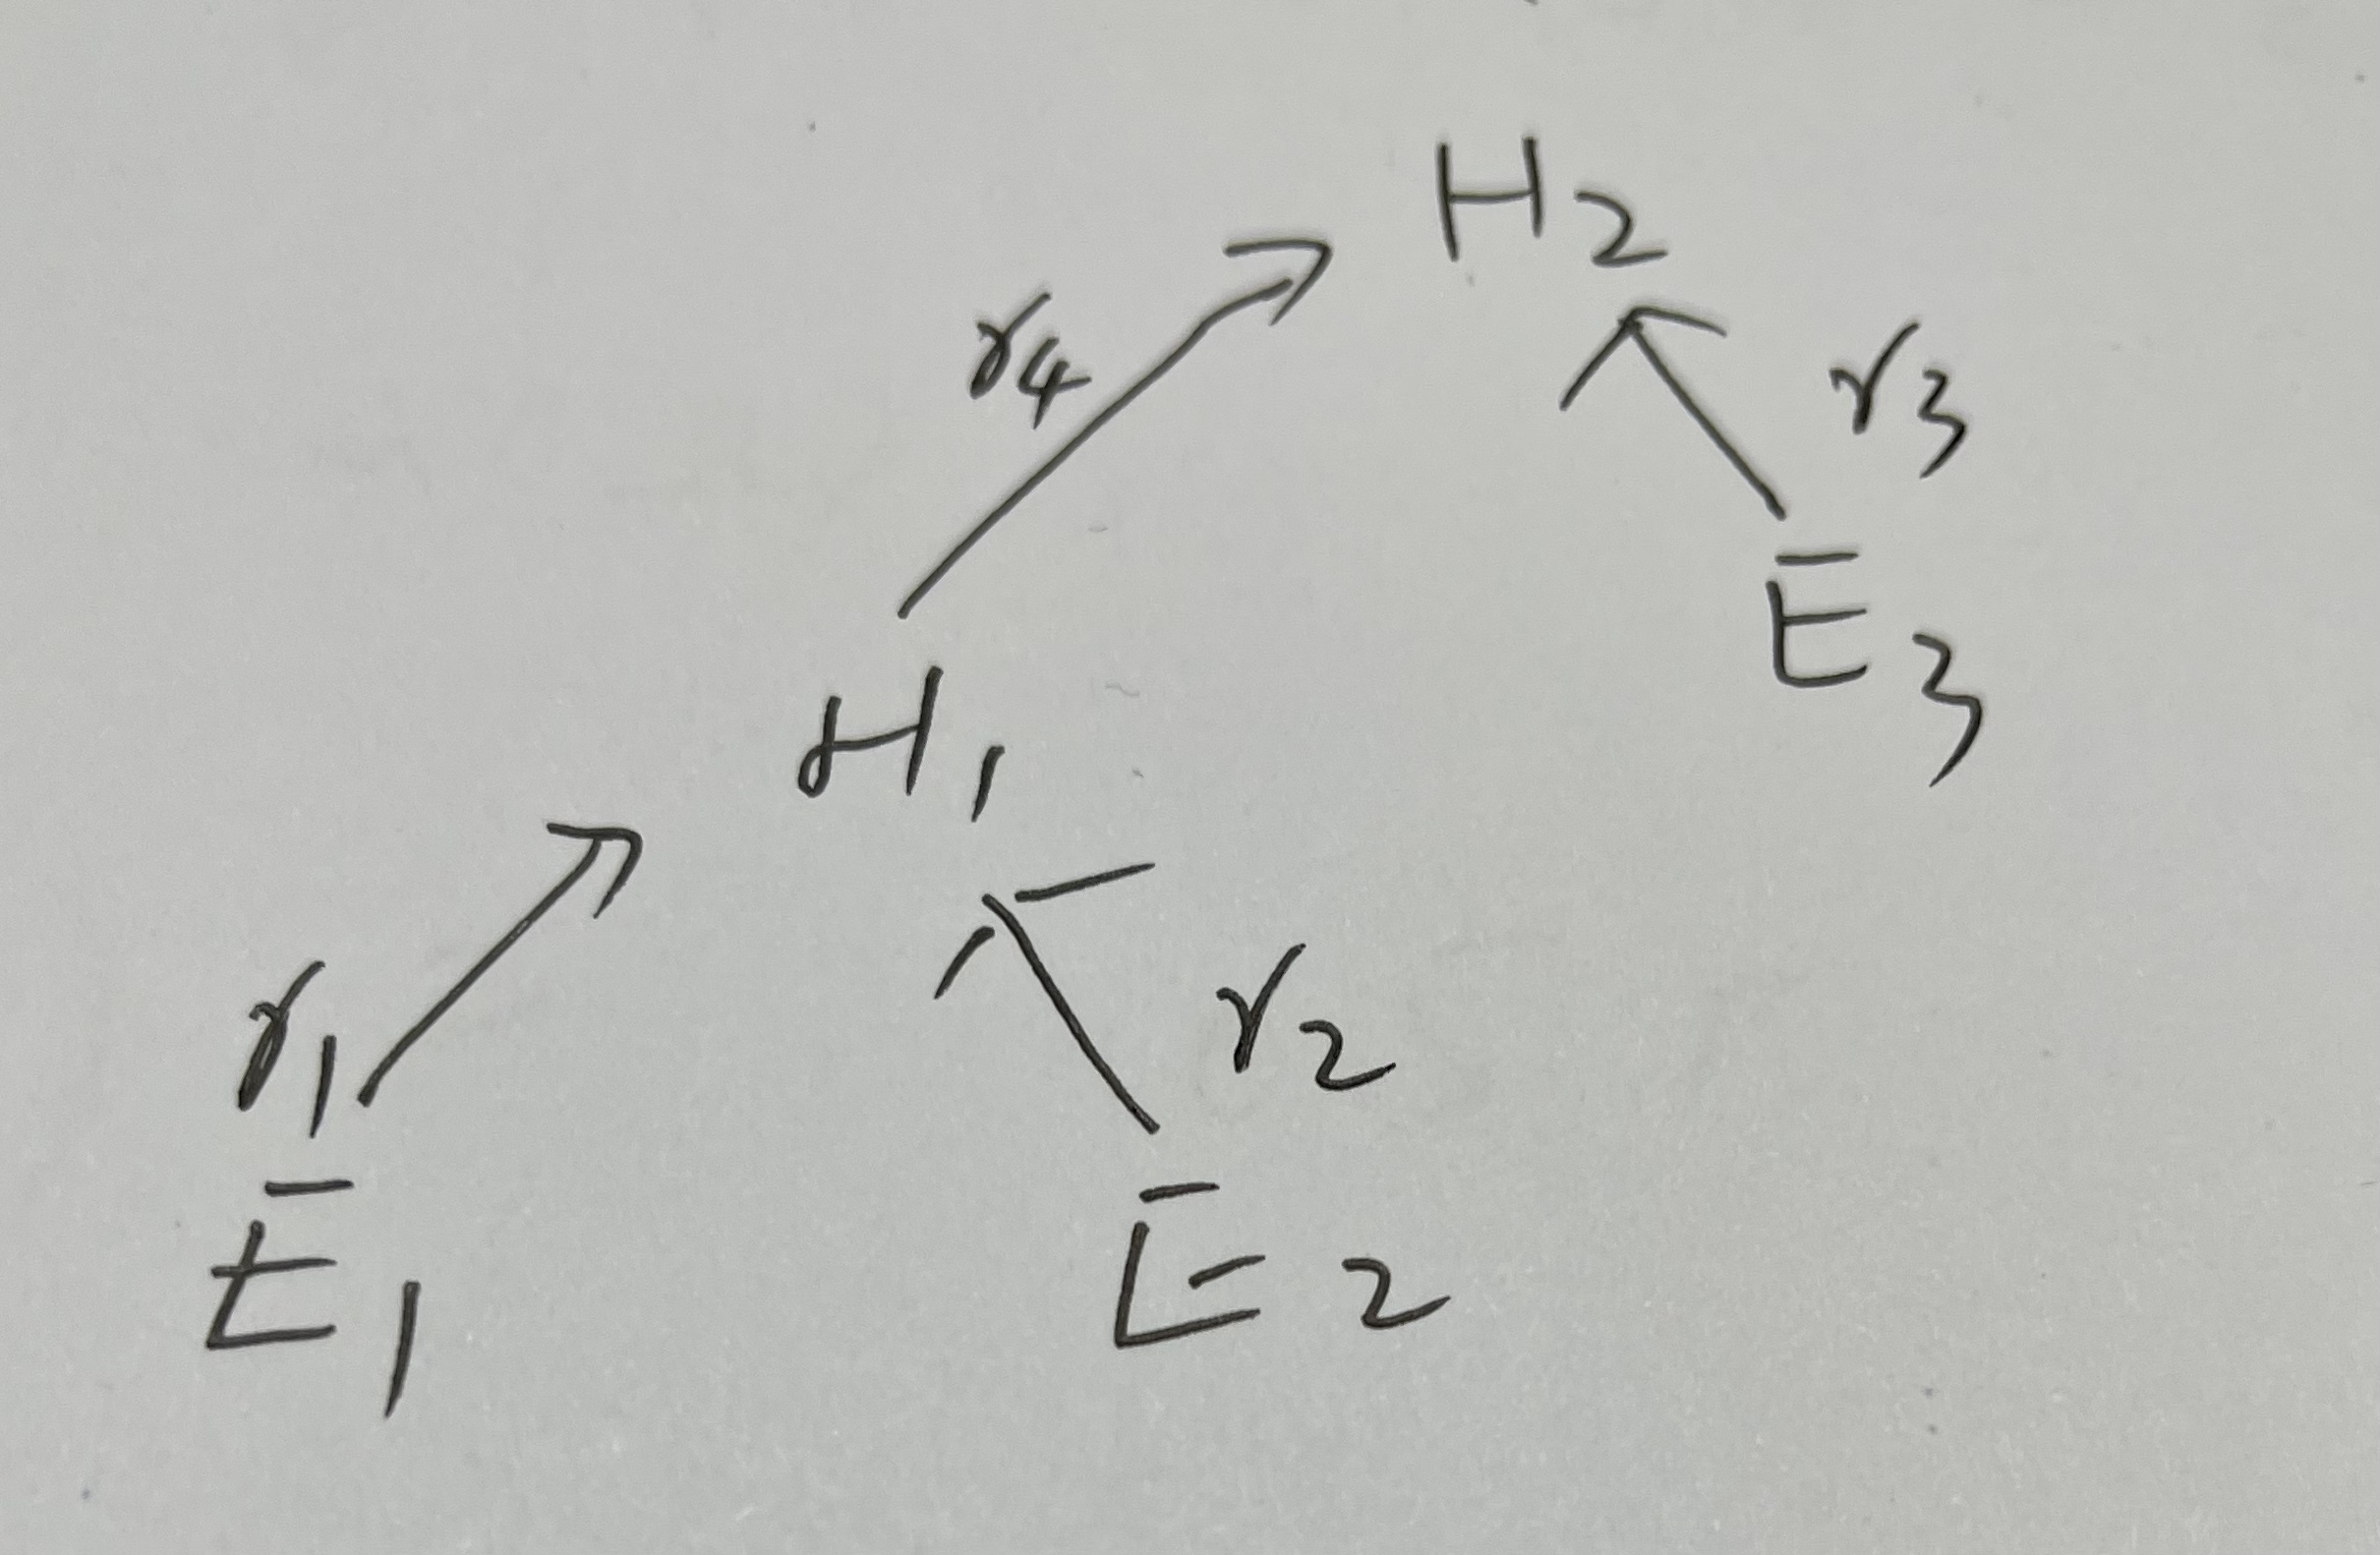 H2
r4
r3
E3
H1
r1
r2
E1
E2